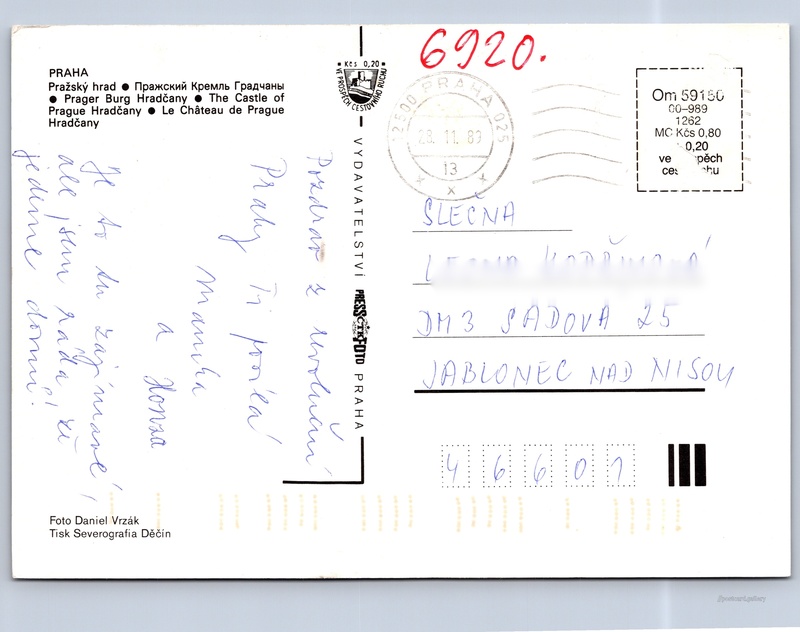 PRAHA
Pražský hrad ● Пражский Кремль Градчаны
● Prager Burg Hradčany ● The Castle of
Prague Hradčany ● Le Château de Prague
Hradčany
Kčs 0,20
VE PROSPĚCH CESTOVNÍHO RUCHU
VYDAVATELSTVÍ PRESSFOTO PRAHA
ČTK
Pozdrav z revoluční
Prahy Ti posílá
Maruka
a Honza
Je to tu zajímavé,
ale jsem ráda, že
jedeme domů!
Foto Daniel Vrzák
Tisk Severografia Děčín
6920.
12500 PRAHA 025
28.11.89
13
Om 59150
00-989
1262
MC Kčs 0,80
0,20
ve
SLEČNA
DM3 SADOVÁ 25
JABLONEC NAD NISOU
46601